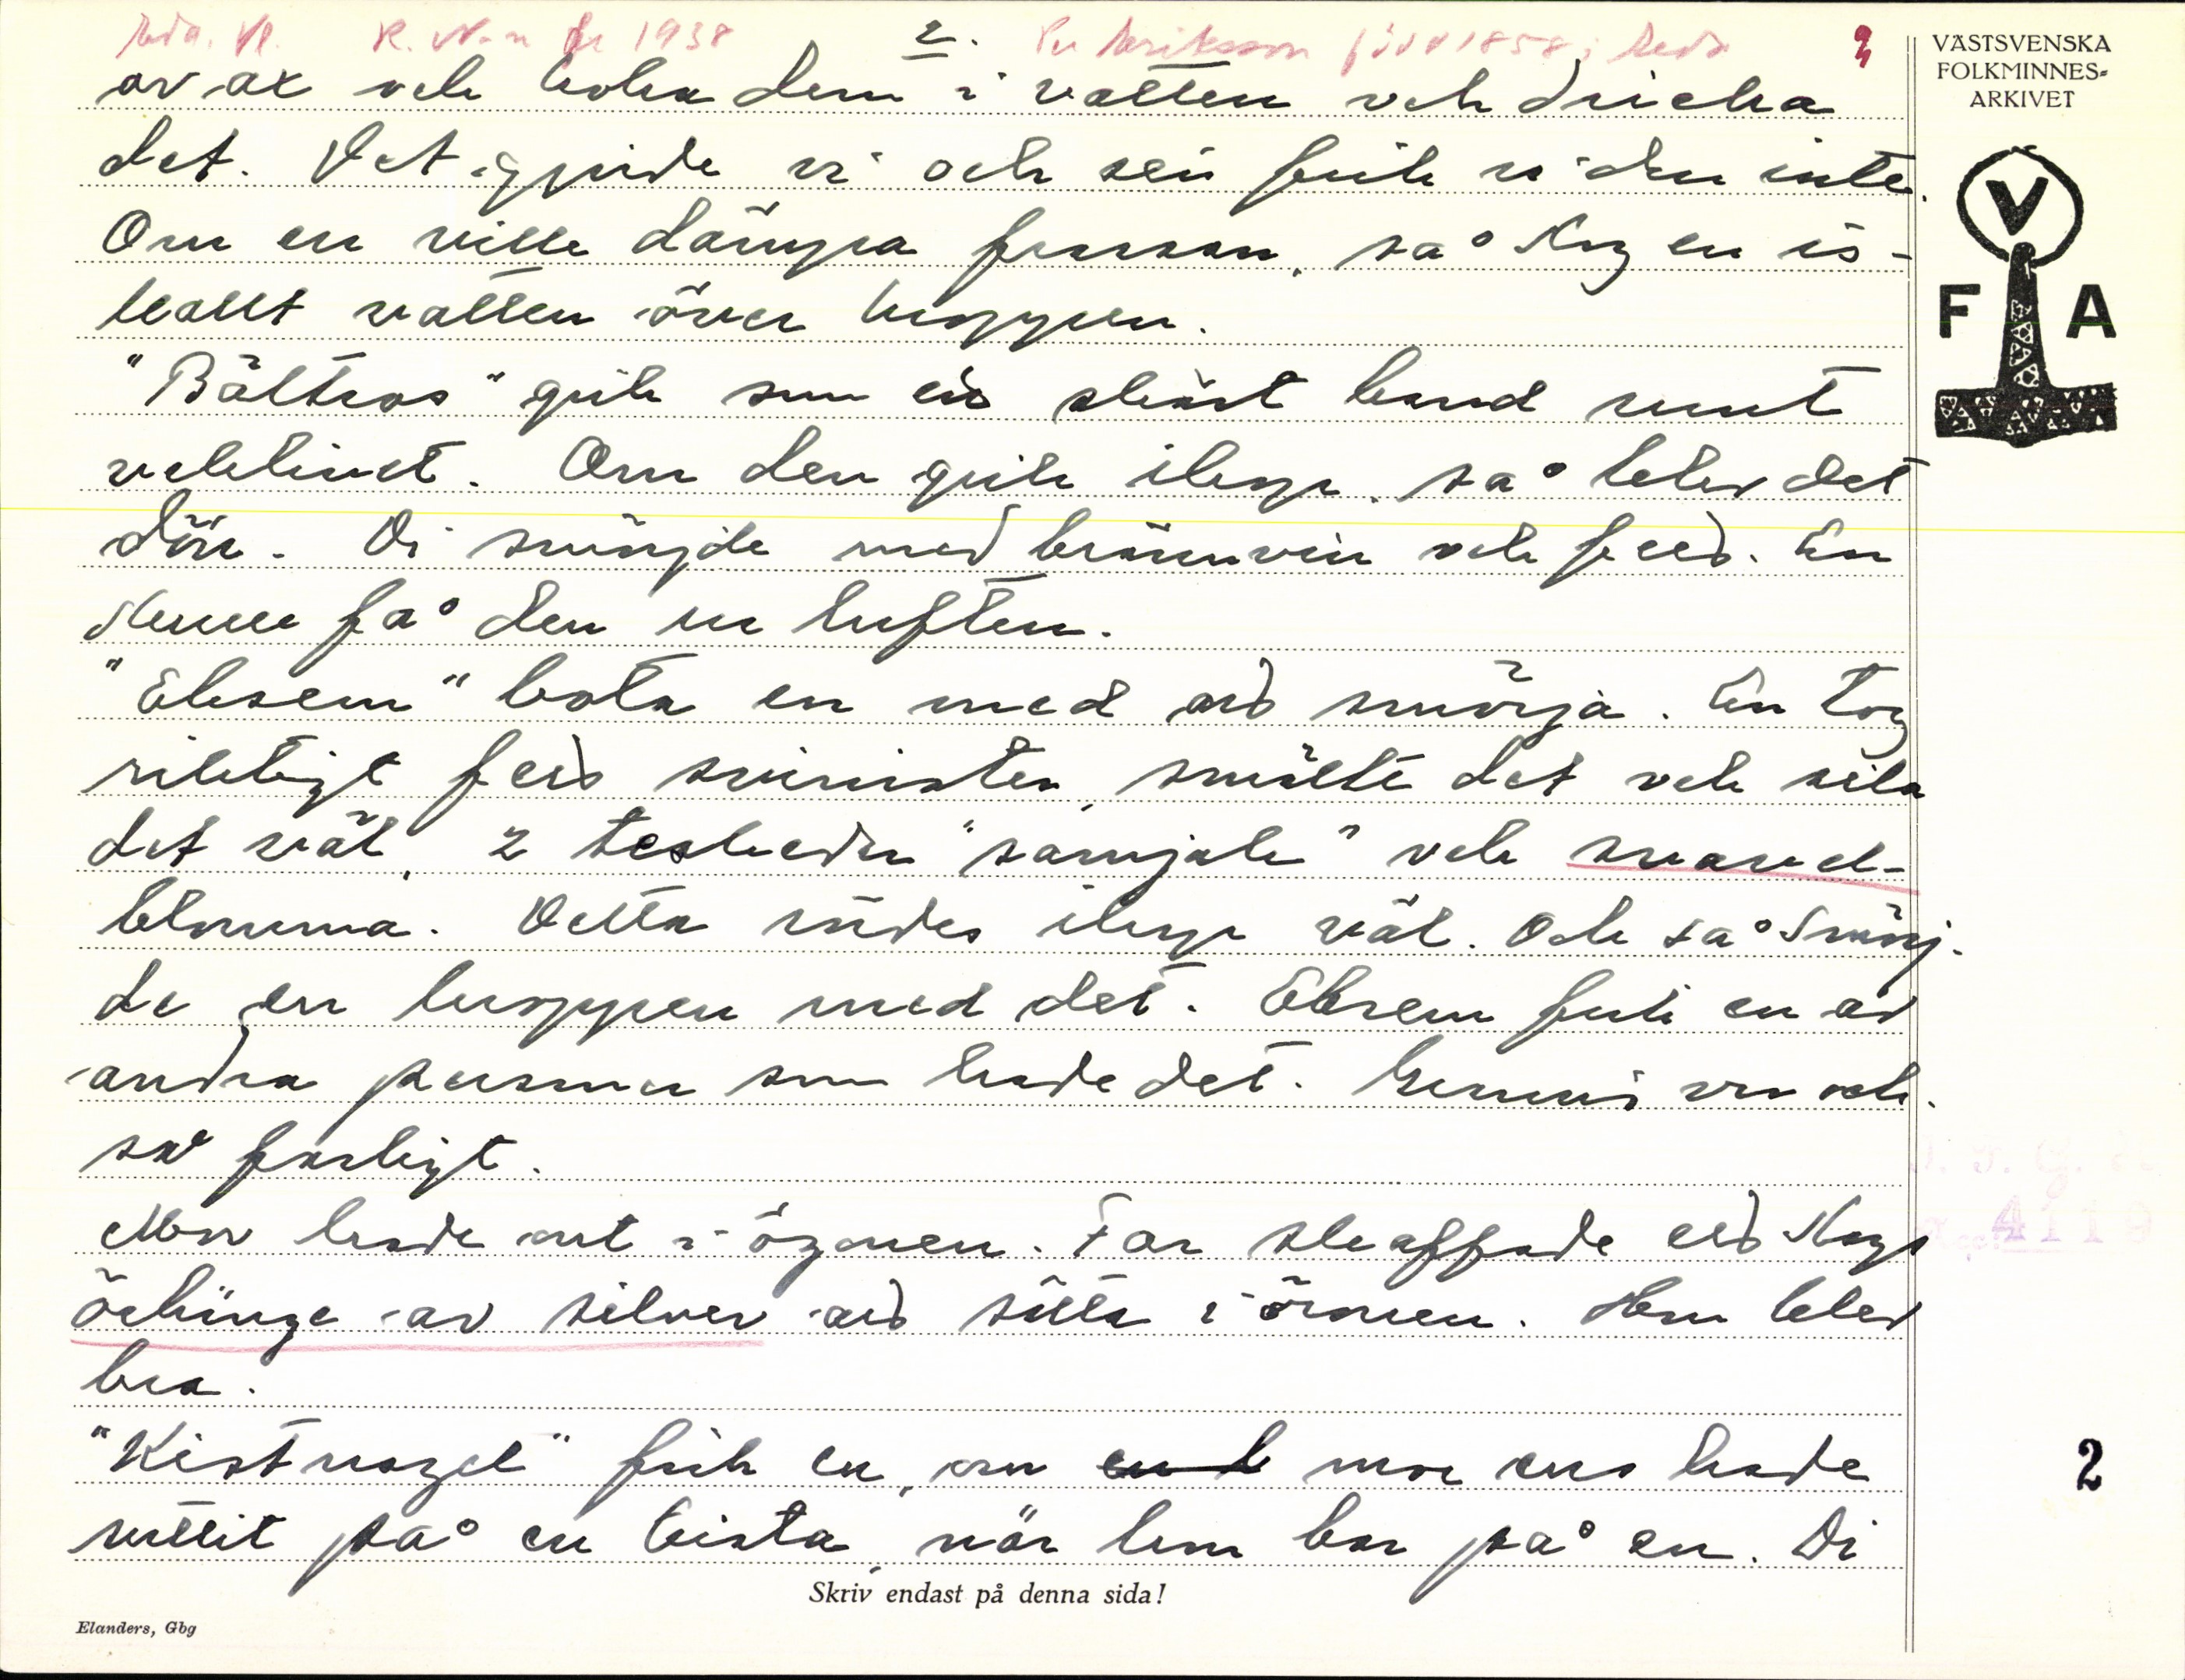 2.
VÄSTSVENSKA
FOLKMINNES-
ARKIVET
av ax och koka dem i vatten och dricka
det. Det gjorde vi och sen fick vi den inte.
Om en ville dämpa frossan, så tog en is-
kallt vatten över kroppen.
V
F A
"Bältros" gick som ett skärt band runt
veklivet. Om den gick ihop, så blev det
dön. Di smörjde med brännvin och fett. En
skulle få den ur luften.
"Eksem" bota en med att smörja. En tog
riktigt fett svinister, smälte det och sila
det väl, 2 teskedar "samjak" och svavel-
blomma. Detta rördes ihop väl. Och så smörj-
de en kroppen med det. Eksem fick en av
andra personer som hade det. Gemens var och
så farligt.
Mor hade ont i ögonen. Far skaffade ett slags
örhänge av silver att sätta i öronen. Hon blev
bra.
"Kistnagel" fick en, om mor ens hade
suttit på en kista, när hon bar på en. Di
2
Skriv endast på denna sida!
Elanders, Gbg